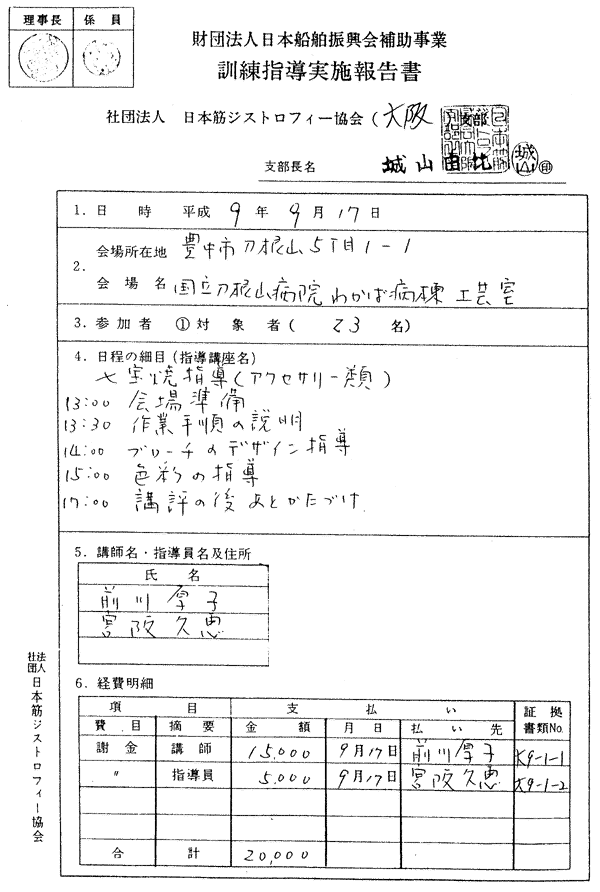 理事長 係員
財団法人日本船舶振興会補助事業
訓練指導実施報告書
社団法人 日本筋ジストロフィー協会(大阪 支部)
支部長名 城山由比 城山 印
1.日 時 平成 9 年 9 月 17 日
2.
会場所在地 豊中市刀根山5丁目1-1
会場名 国立刀根山病院 わかば病棟 工芸室
3.参加者 ①対象者( 23 名)
4.日程の細目(指導講座名)
七宝焼指導(アクセサリー類)
13:00 会場準備
13:30 作業手順の説明
14:00 ブローチのデザイン指導
15:00 色彩の指導
17:00 講評の後 あとかたづけ
5.講師名・指導員名及住所
氏 名
前川厚子
宮阪久恵
6.経費明細
項 目 支 払 い 証拠書類No.
費目 摘要 金額 月日 払い先
謝金 講師 15,000 9月17日 前川厚子 大9-1-1
〃 指導員 5,000 9月17日 宮阪久恵 大9-1-2
合 計 20,000
社団法人 日本筋ジストロフィー協会